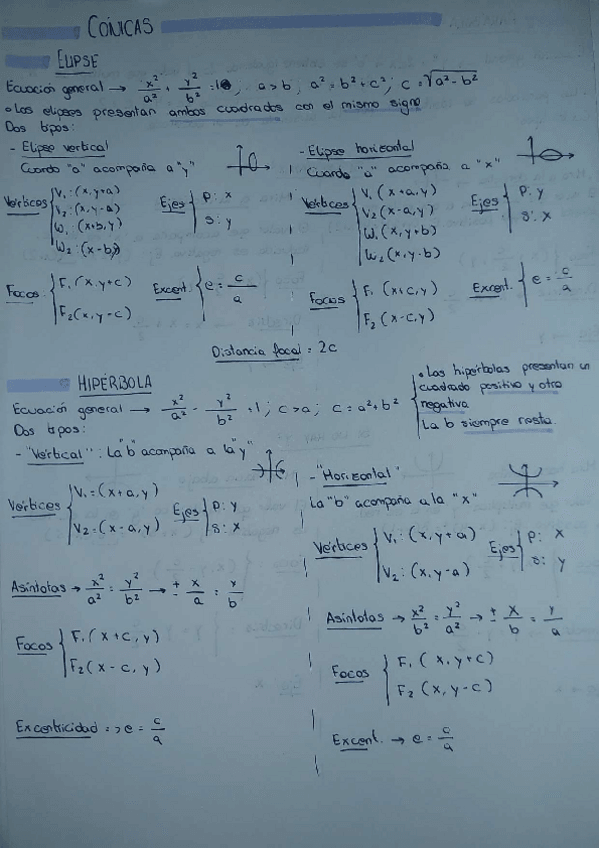 CÓNICAS
ELIPSE
Ecuación general → x²/a² + y²/b² = 1; a > b; a² = b² + c²; c = √a² - b²
• Las elipses presentan ambos cuadrados con el mismo signo
Dos tipos:
- Elipse vertical
Cuando "a" acompaña a "y"
Vértices { V₁: (x, y+a)
V₂: (x, y-a)
W₁: (x+b, y)
W₂: (x-b, y)
Ejes { P: x
S: y
Focos { F₁ (x, y+c)
F₂ (x, y-c)
Excent. { e = c/a
- Elipse horizontal
Cuando "a" acompaña a "x"
Vértices { V₁ (x+a, y)
V₂ (x-a, y)
W₁ (x, y+b)
W₂ (x, y-b)
Ejes { P: y
S: x
Focos { F₁ (x+c, y)
F₂ (x-c, y)
Excent. { e = c/a
Distancia focal = 2c
HIPÉRBOLA
Ecuación general → x²/a² - y²/b² = 1; c > a; c = a² + b²
• Las hipérbolas presentan un
cuadrado positivo y otro
negativo
La b siempre resta.
Dos tipos:
- "Vertical": La "b" acompaña a la "y"
Vértices { V₁ = (x+a, y)
V₂ = (x-a, y)
Ejes { P: y
S: x
Asíntotas → x²/a² = y²/b² → ± x/a = y/b
Focos { F₁ (x+c, y)
F₂ (x-c, y)
Excentricidad => e = c/a
- "Horizontal"
La "b" acompaña a la "x"
Vértices { V₁: (x, y+a)
V₂: (x, y-a)
Ejes { P: x
S: y
Asíntotas → x²/b² = y²/a² → ± x/b = y/a
Focos { F₁ (x, y+c)
F₂ (x, y-c)
Excent. → e = c/a